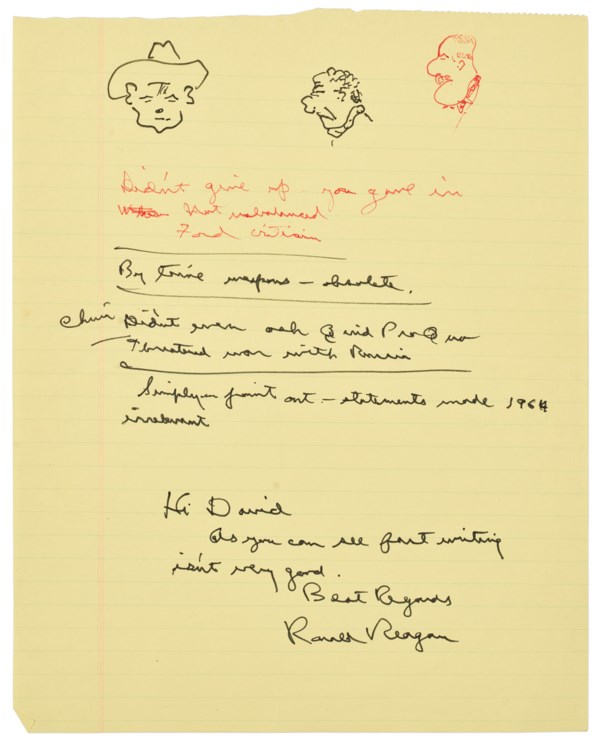 Didn't give up you gave in
Not unbalanced
Ford criticism
By time weapons – obsolete.
Didn't even ask Quid Pro Quo
Threatened war with Russia
Simply point out – statements made 1964
irrelevant
Hi David
As you can see fast writing
isn't very good.
Best Regards
Ronald Reagan